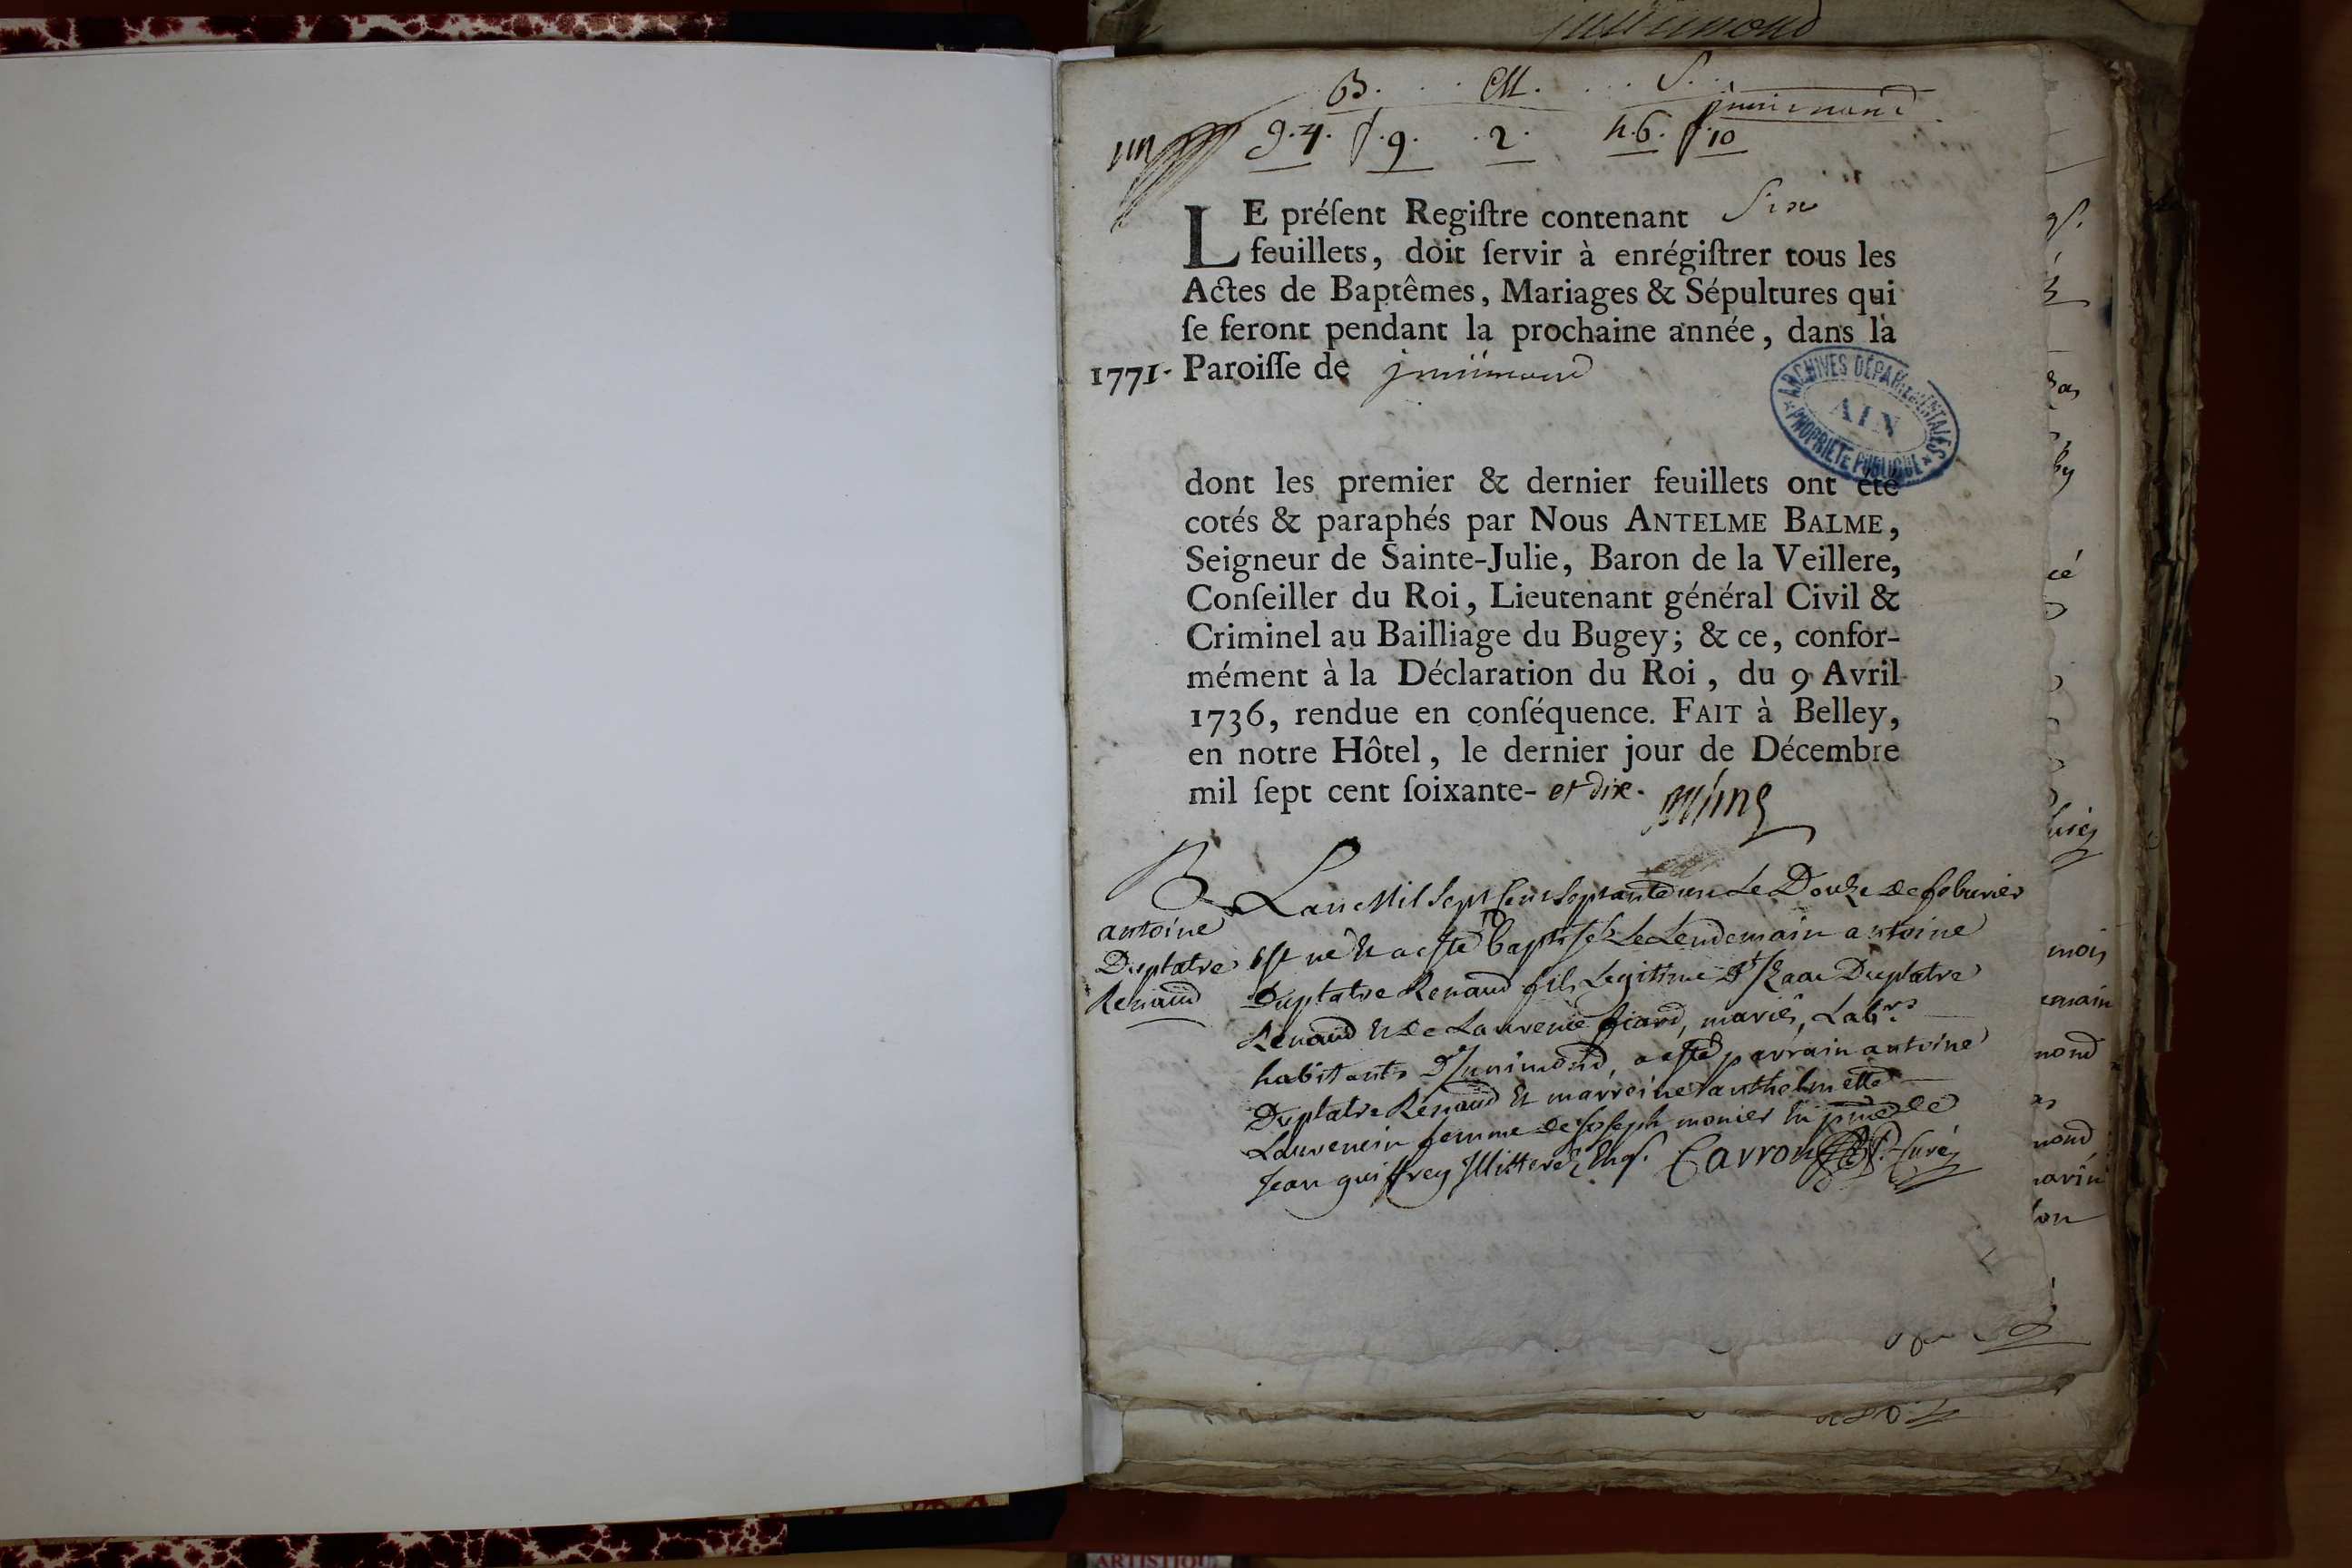 B. . . M. . . S.
junimond
un g.4. f.9. .2. h.6. f.10
LE préſent Regiſtre contenant Six
feuillets, doit ſervir à enrégiſtrer tous les
Actes de Baptêmes, Mariages & Sépultures qui
ſe feront pendant la prochaine année, dans la
1771. Paroiſſe de junimond
ARCHIVES DÉPARTEMENTALES
AIN
PROPRIÉTÉ PUBLIQUE
dont les premier & dernier feuillets ont été
cotés & paraphés par Nous ANTELME BALME,
Seigneur de Sainte-Julie, Baron de la Veillere,
Conſeiller du Roi, Lieutenant général Civil &
Criminel au Bailliage du Bugey; & ce, confor-
mément à la Déclaration du Roi, du 9 Avril
1736, rendue en conſéquence. FAIT à Belley,
en notre Hôtel, le dernier jour de Décembre
mil ſept cent ſoixante- et dix.
B
antoine
Duplatre
Renaud
Lan Mil Sept Cent Septante un Le Douze de febvrier
Est né & a esté baptisé Le Lendemain antoine
Duplatre Renaud fils Legittime d'Isaac Duplatre
Renaud & de Laurence fiard, mariés, Labrs
habitants d'Junimond, a esté parrain antoine
Duplatre Renaud Et marreine anthelmette
Laurencin femme de Joseph monier En pnce de
Jean guiffrey Illitteré Enq. Carron Curé
mois
emain
nond
nond
arin
ARTISTIQUE